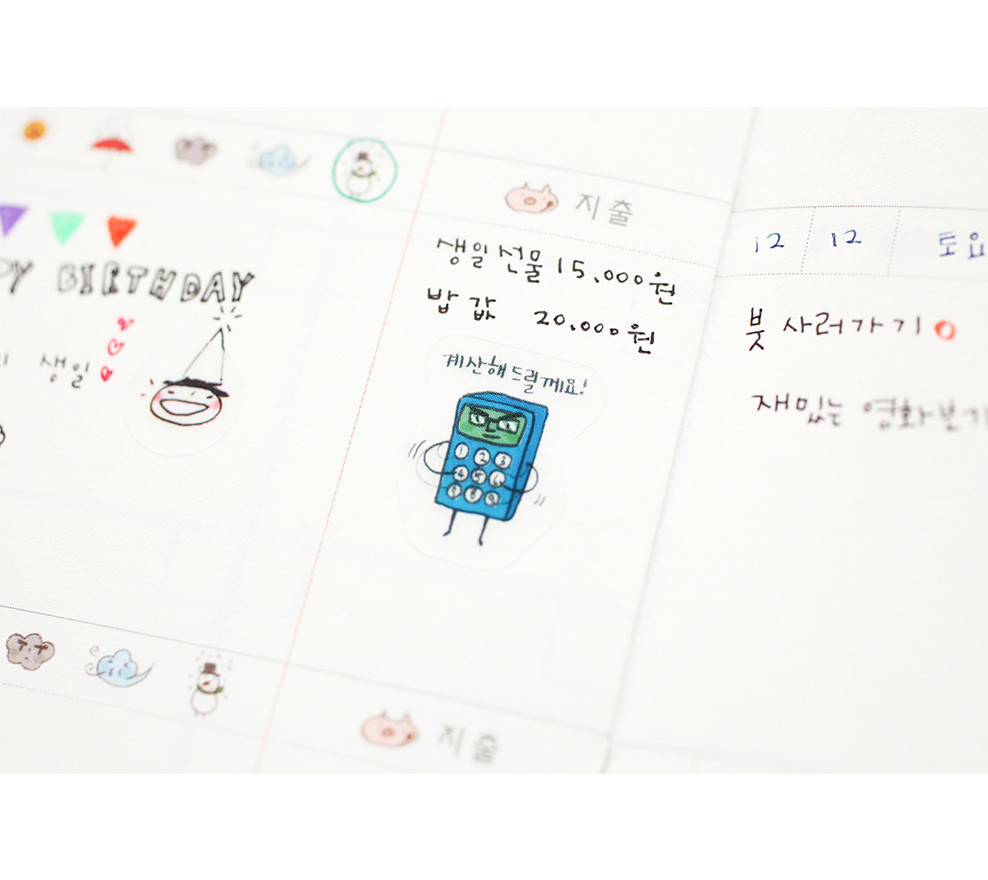 지출
BIRTHDAY
생일
생일선물 15,000원
밥 값 20,000원
계산해 드릴께요!
1 2 3
4 5 6
7 8 9
지출
12 12
붓 사러가기
재밌는 영화보기